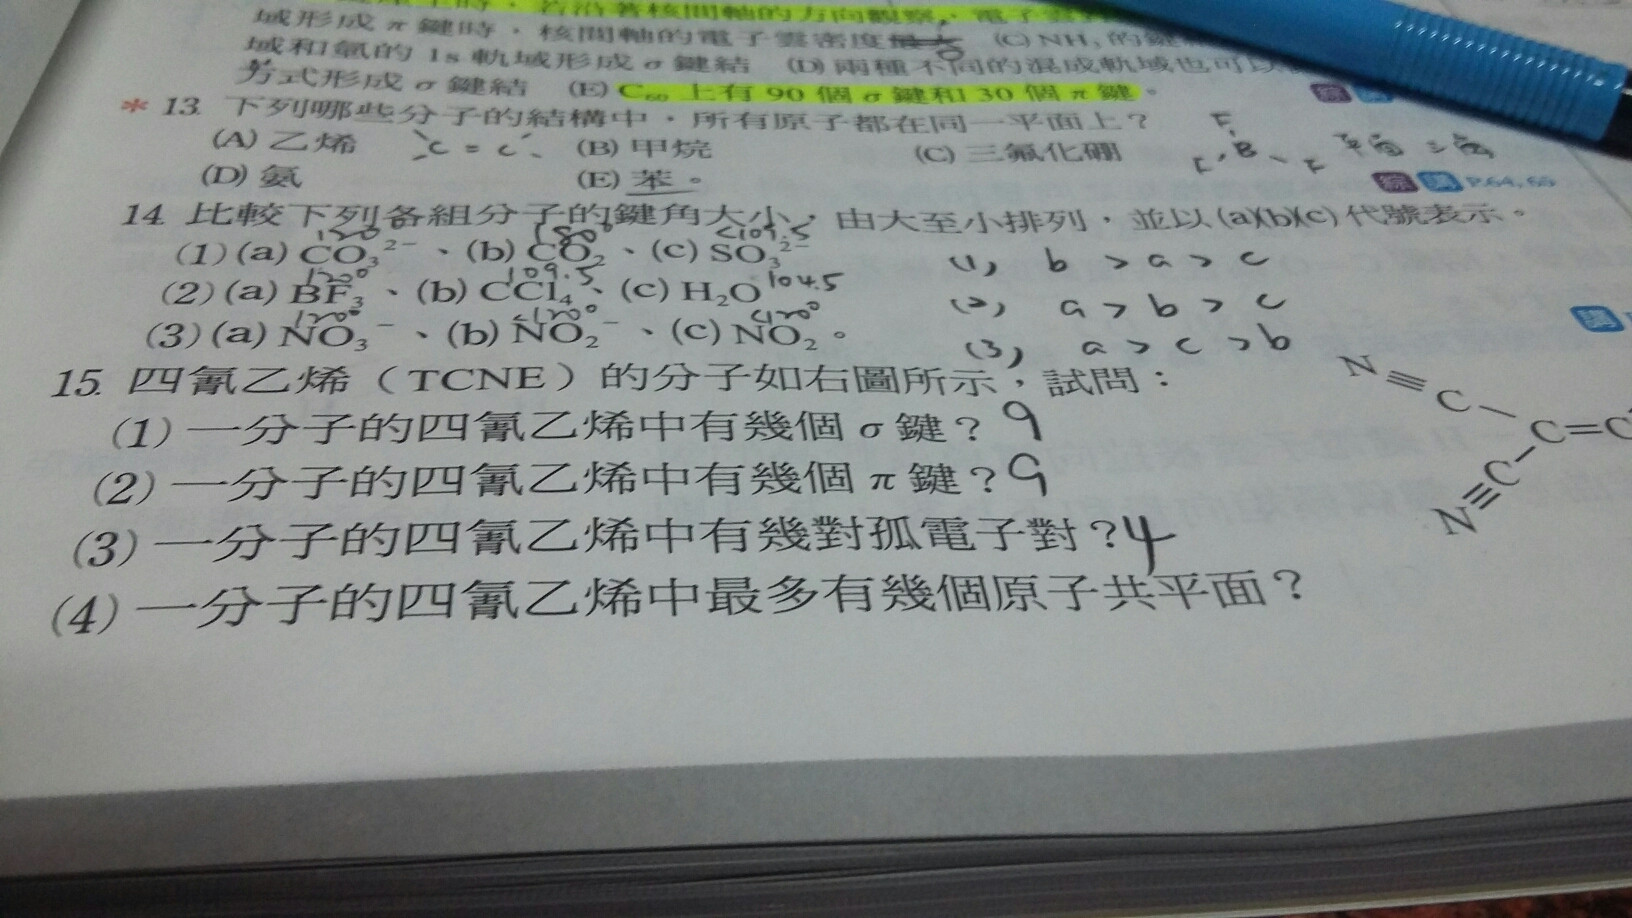 域形成 π 鍵時，核間軸的電子雲密度最大 0 (C) NH₃ 的鍵
域和氫的 1s 軌域形成 σ 鍵結 (D) 兩種不同的混成軌域也可以
方式形成 σ 鍵結 (E) C₆₀ 上有 90 個 σ 鍵和 30 個 π 鍵。
* 13. 下列哪些分子的結構中，所有原子都在同一平面上？
(A) 乙烯 C = C (B) 甲烷 (C) 三氟化硼 F B F F 平面三角
(D) 氨 (E) 苯。
P.64, 65
14. 比較下列各組分子的鍵角大小，由大至小排列，並以(a)(b)(c)代號表示。
120° 180° <109.5
(1) (a) CO₃²⁻、(b) CO₂、(c) SO₃²⁻ (1) b > a > c
120° 109.5 104.5
(2) (a) BF₃、(b) CCl₄、(c) H₂O (2) a > b > c
120° <120° <120°
(3) (a) NO₃⁻、(b) NO₂⁻、(c) NO₂。 (3) a > c > b
15. 四氰乙烯（TCNE）的分子如右圖所示，試問：
(1) 一分子的四氰乙烯中有幾個 σ 鍵？9
(2) 一分子的四氰乙烯中有幾個 π 鍵？9
(3) 一分子的四氰乙烯中有幾對孤電子對？4
(4) 一分子的四氰乙烯中最多有幾個原子共平面？
N≡C
C=C
N≡C